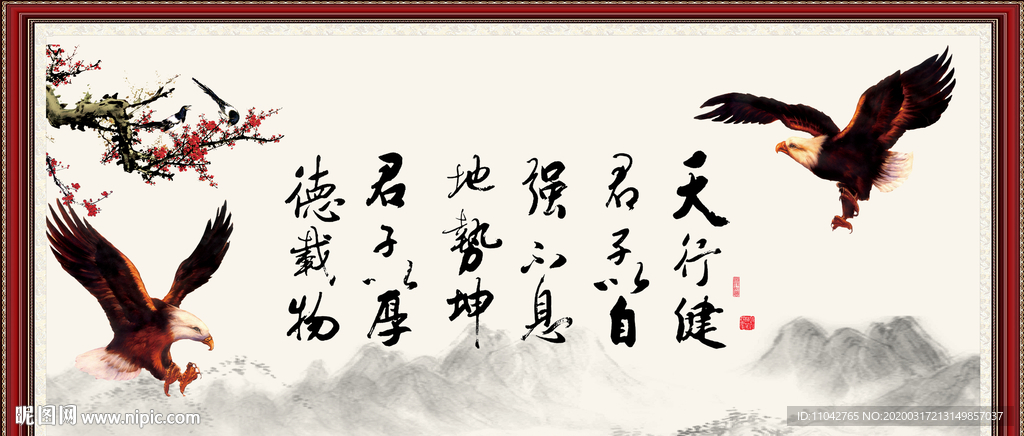 天行健
君子以自
强不息
地势坤
君子以厚
德载物
昵图网 www.nipic.com
ID:11042765 NO:20200317213149857037